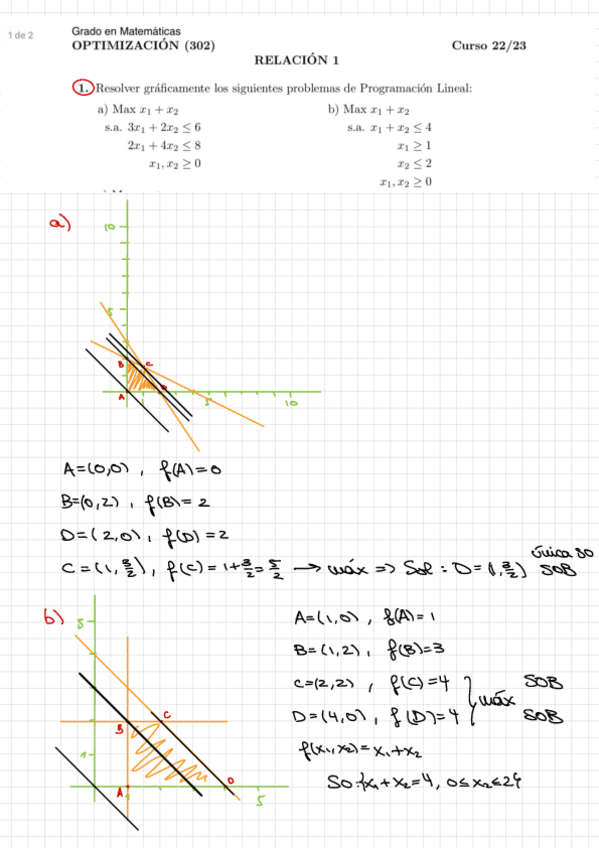 1 de 2
Grado en Matemáticas
OPTIMIZACIÓN (302) Curso 22/23
RELACIÓN 1
1. Resolver gráficamente los siguientes problemas de Programación Lineal:
a) Max x₁ + x₂
s.a. 3x₁ + 2x₂ ≤ 6
2x₁ + 4x₂ ≤ 8
x₁, x₂ ≥ 0
b) Max x₁ + x₂
s.a. x₁ + x₂ ≤ 4
x₁ ≥ 1
x₂ ≤ 2
x₁, x₂ ≥ 0
a)
10
5
B C
A D
1 5 10
A=(0,0) , f(A)=0
B=(0,2) , f(B)=2
D=(2,0) , f(D)=2
C=(1, 3/2) , f(C)=1+3/2=5/2 → máx => Sol : D=(1, 3/2) única SO SOB
b)
5
B C
1
A D
1 5
A=(1,0) , f(A)=1
B=(1,2) , f(B)=3
C=(2,2) , f(C)=4 } máx SOB
D=(4,0) , f(D)=4 SOB
f(x₁,x₂)=x₁+x₂
SO:{x₁+x₂=4, 0≤x₂≤2}